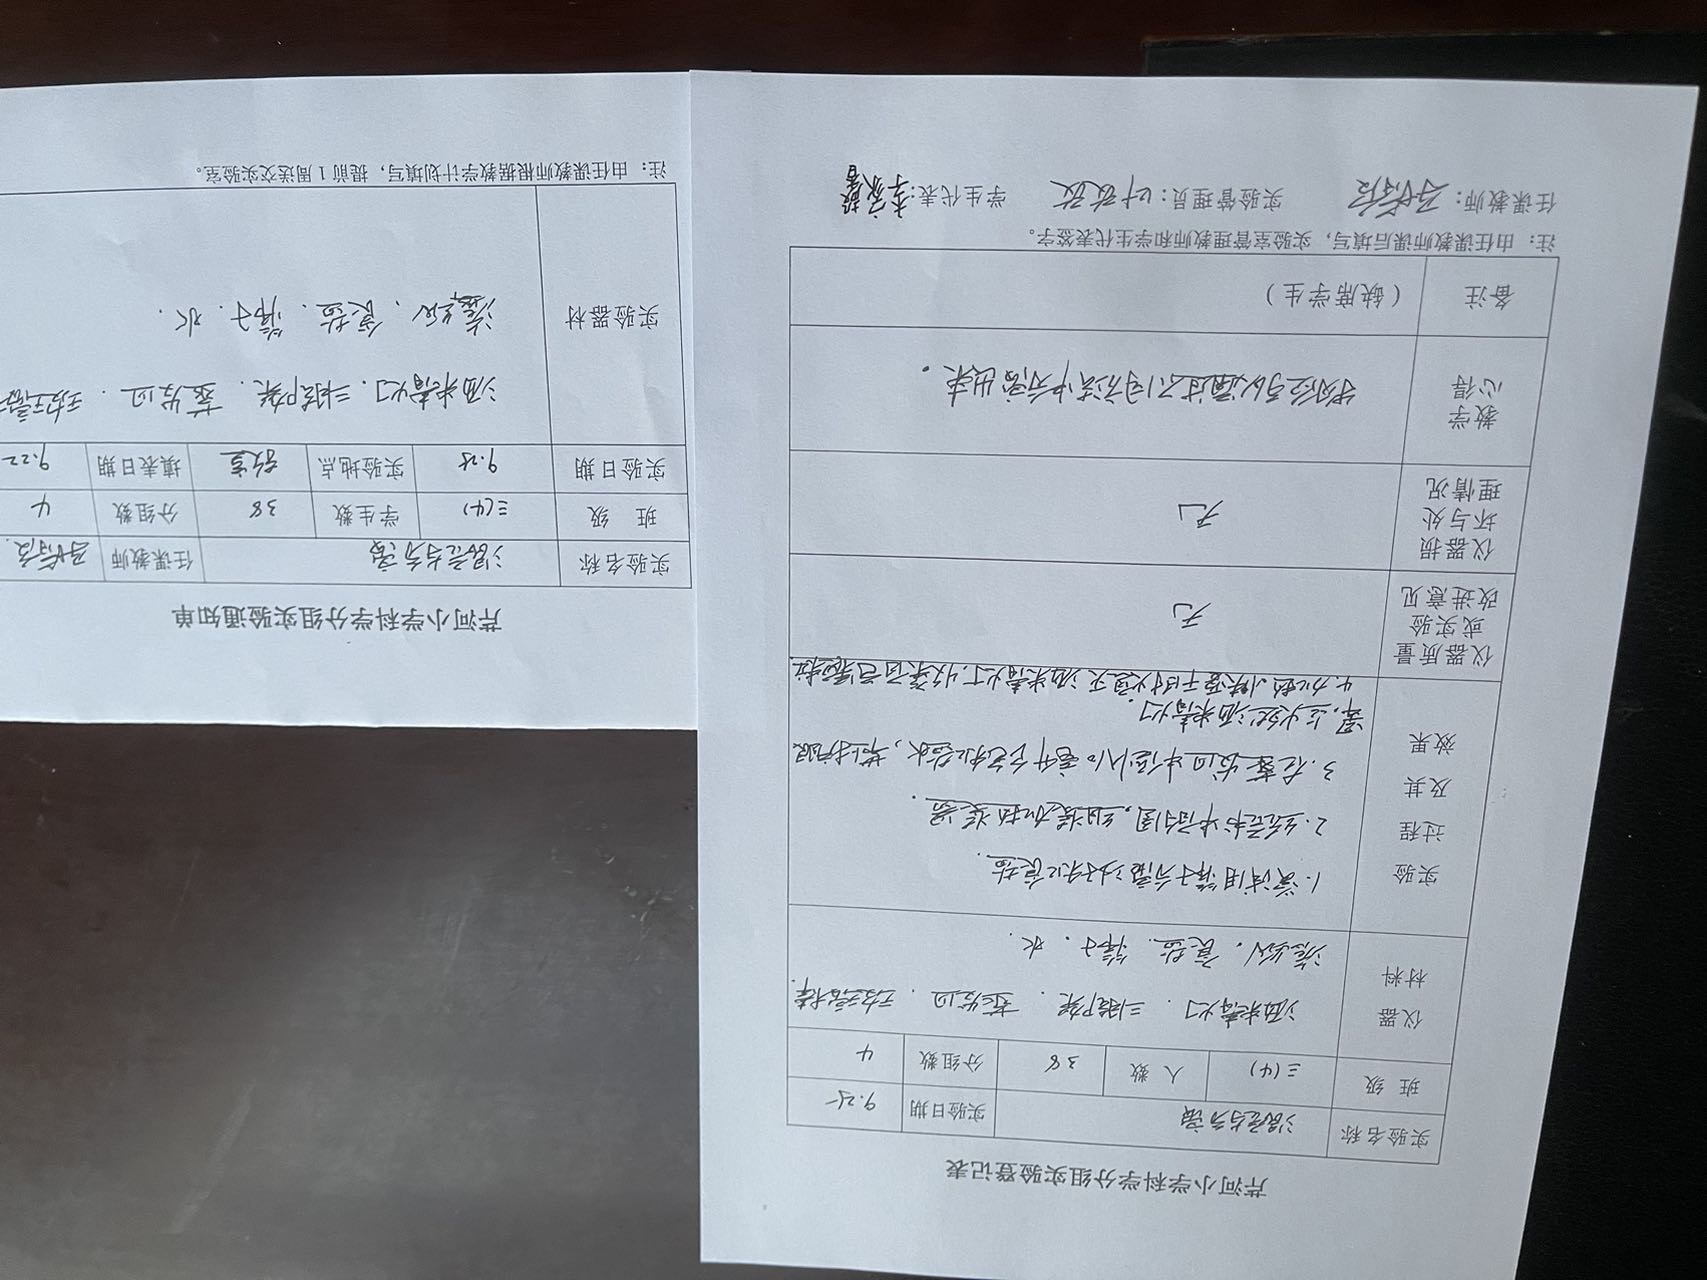 芹河小学科学分组实验登记表
实验名称 混合与分离 实验日期 9.25
班 级 三(4) 人 数 38 分组数 4
仪器材料 酒精灯. 三脚架. 蒸发皿. 玻璃棒.
滤纸. 食盐. 筛子. 水.
实验过程及其效果 1.尝试用筛子分离沙和食盐
2.结合书中插图,组装加热装置.
3.在蒸发皿中倒入10毫升左右和盐水,戴上护眼
罩,点燃酒精灯.
4.加热 时熄灭酒精灯,
仪器质量或实验改进意见 无
仪器损坏与处理情况 无
教学心得 通过不同方法中分离出来.
备注 (缺席学生)
注:由任课教师课后填写,实验室管理教师和学生代表签字。
任课教师: 实验管理员: 学生代表:
芹河小学科学分组实验通知单
实验名称 混合与分离 任课教师
班 级 三(4) 学生数 38 分组数 4
实验日期 9.25 实验地点 教室 填表日期 9.22
实验器材 酒精灯. 三脚架. 蒸发皿. 玻璃
滤纸. 食盐. 筛子. 水.
注:由任课教师根据教学计划填写,提前1周送交实验室。